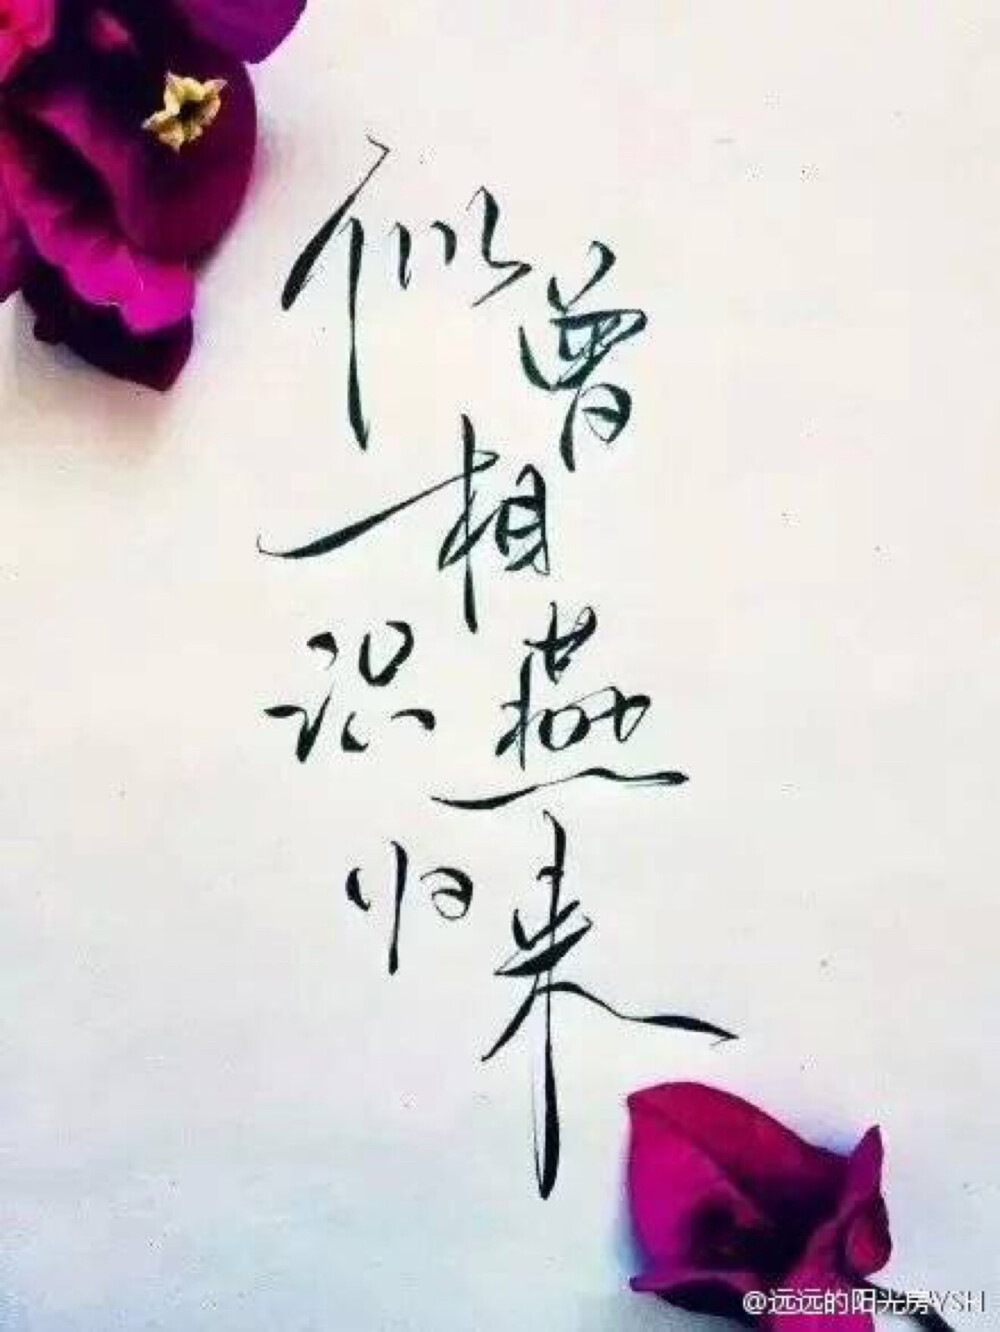 似曾
相
识燕
归来
@远远的阳光房YSH